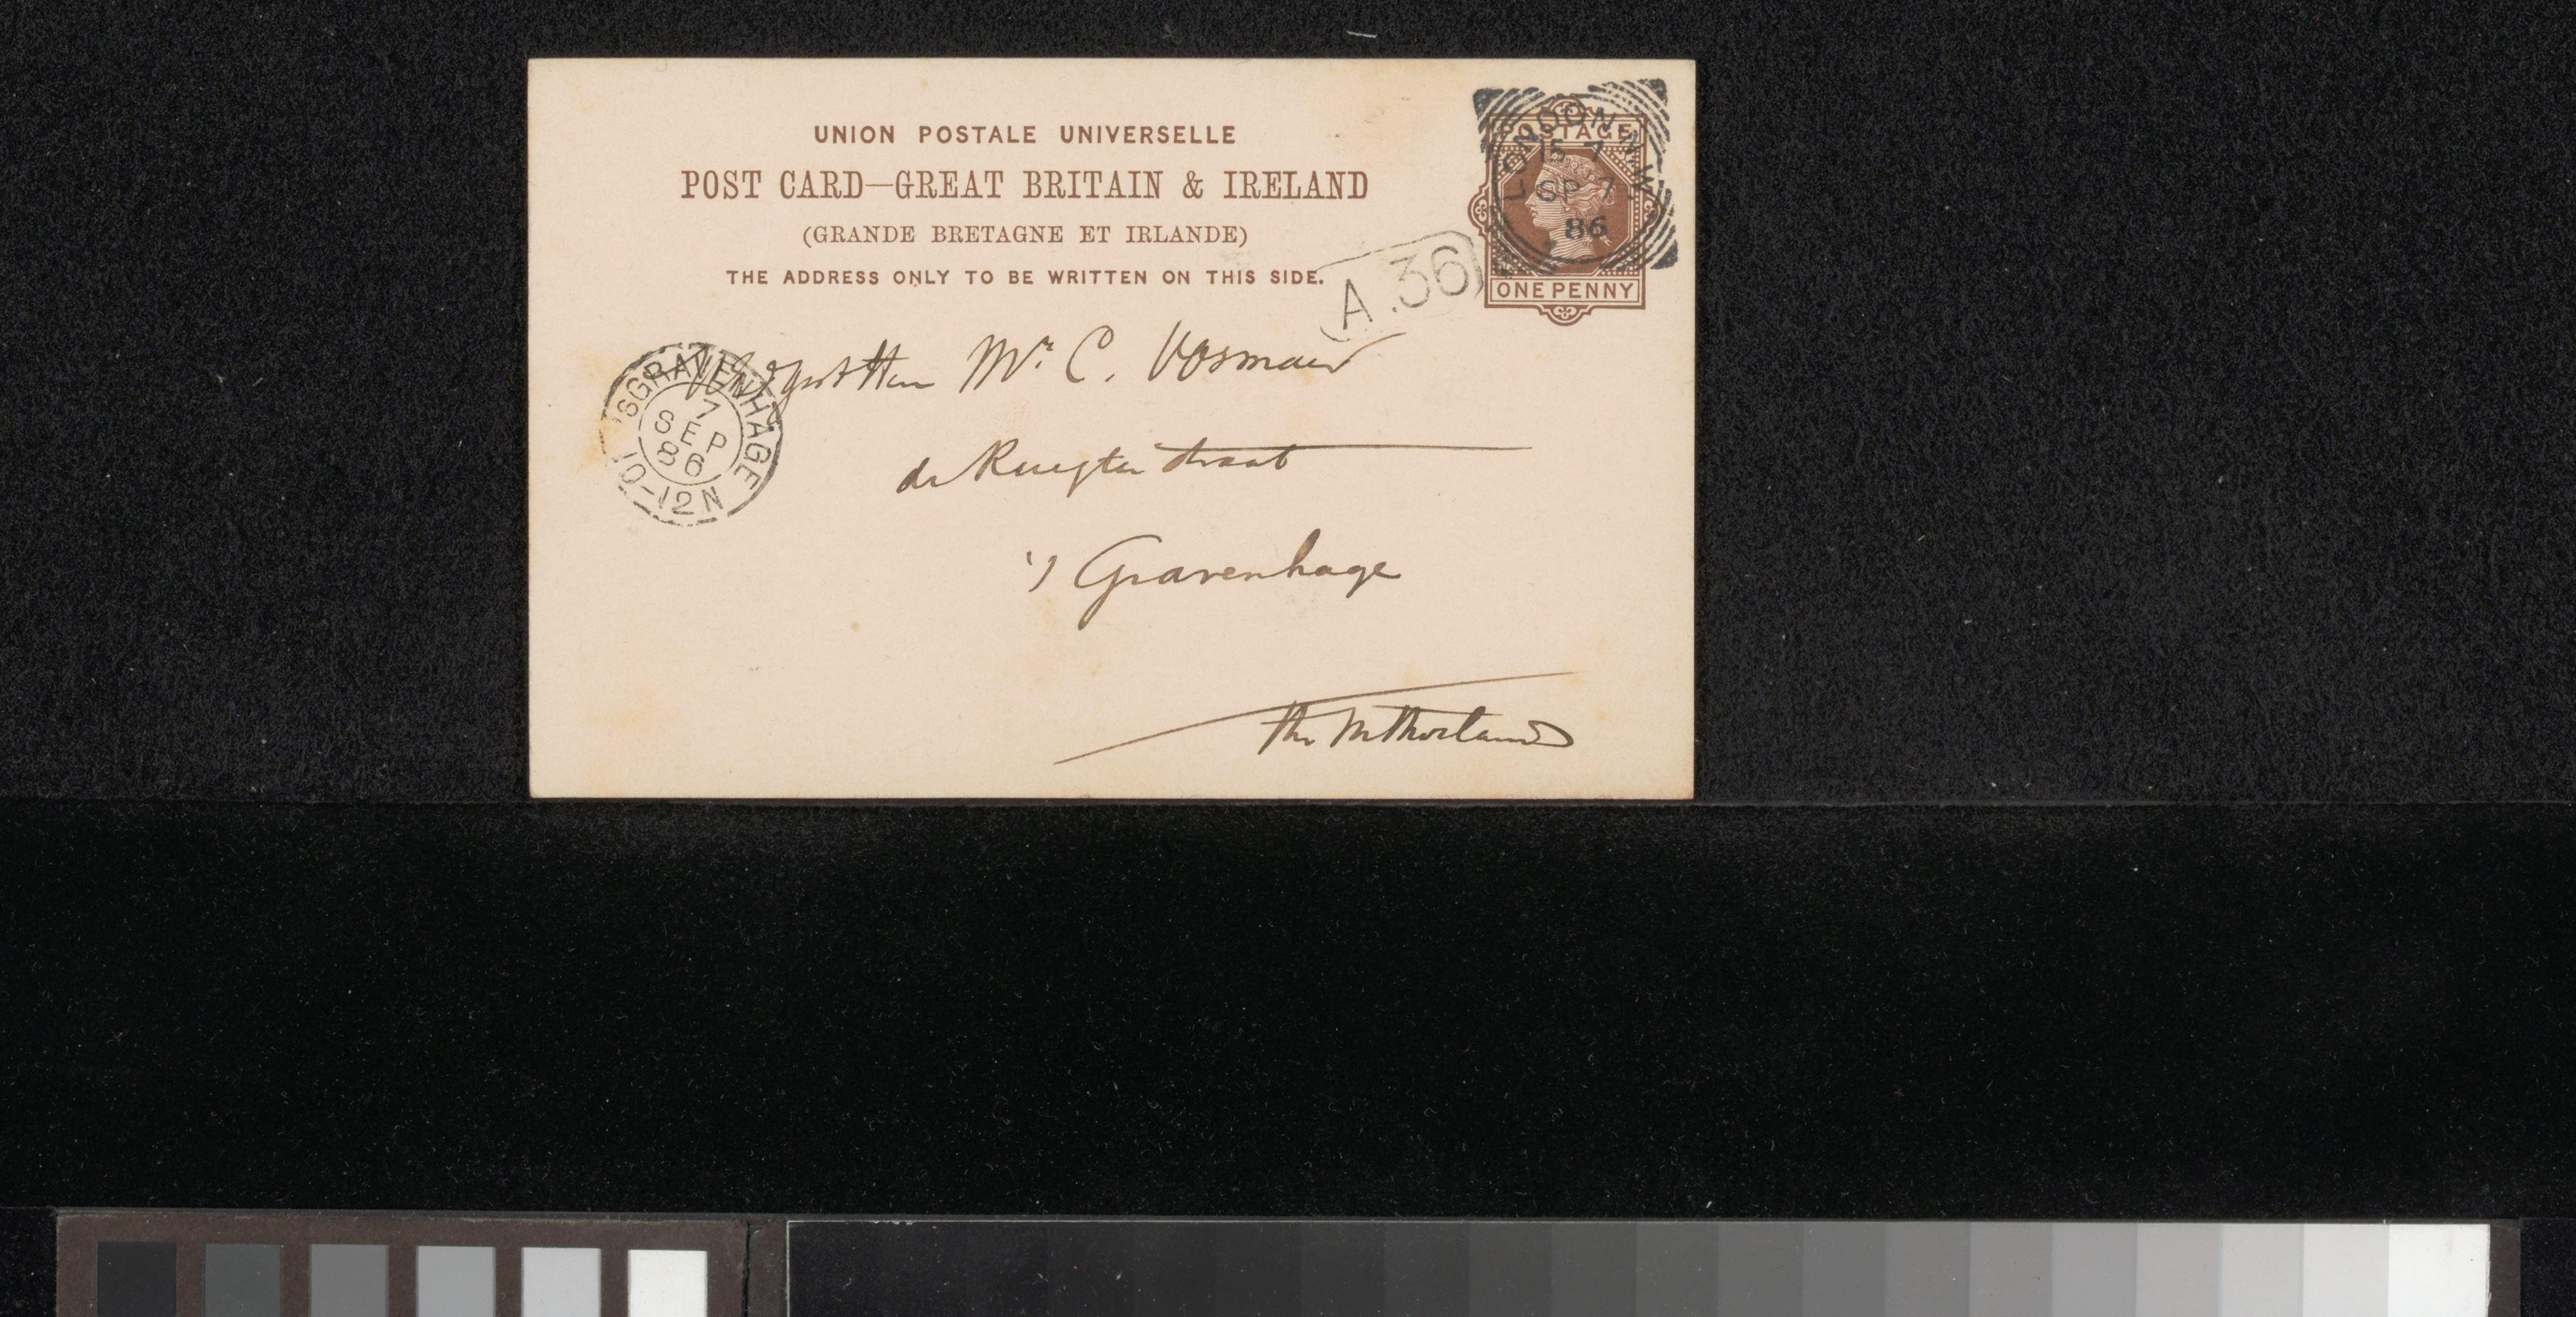 UNION POSTALE UNIVERSELLE
POST CARD—GREAT BRITAIN & IRELAND
(GRANDE BRETAGNE ET IRLANDE)
THE ADDRESS ONLY TO BE WRITTEN ON THIS SIDE.
POSTAGE
ONE PENNY
LONDON.N.W
SP 7
86
A.36
Mr. C. Vosmaer
de Ruyterstraat
's Gravenhage
The Netherlands
'SGRAVENHAGE
7
SEP
86
10-12N